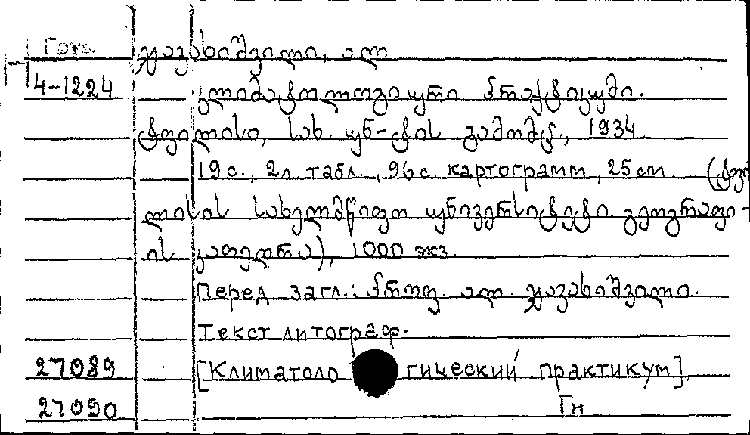 ჯავახიშვილი, ალ
4-1224 კლიმატოლოგიური პრაქტიკუმი.
ტფილისი, სახ. უნ-ტის გამომც., 1934.
19 с., 2 л табл., 96 с. картограмм, 25 см (ტფი-
ლისის სახელმწიფო უნივერსიტეტი გეოგრაფი-
ის კათედრა), 1000 экз.
Перед загл.: პროფ. ალ. ჯავახიშვილი.
Текст литограф.
27089 [Климатологический практикум]
27090 Гн